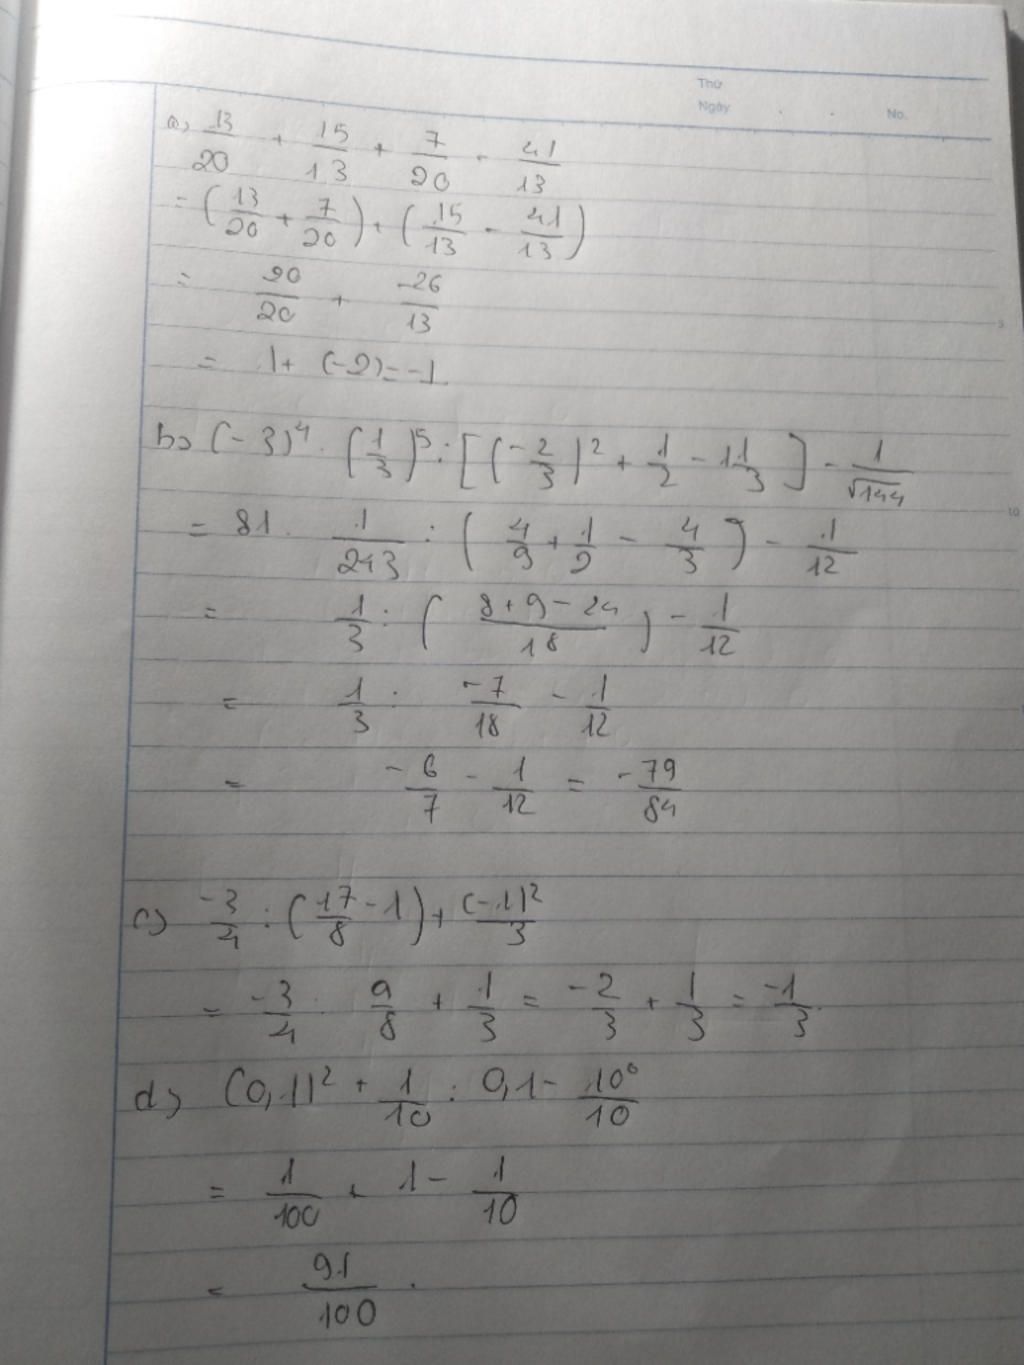 Thứ
Ngày . . No.
a) 13/20 + 15/13 + 7/20 - 41/13
= (13/20 + 7/20) + (15/13 - 41/13)
= 20/20 + -26/13
= 1 + (-2) = -1
b) (-3)⁴ . (1/3)⁵ : [(-2/3)² + 1/2 - 1 1/3] - 1/√144
= 81 . 1/243 : (4/9 + 1/2 - 4/3) - 1/12
= 1/3 : (8+9-24/18) - 1/12
= 1/3 : -7/18 - 1/12
= -6/7 - 1/12 = -79/84
c) -3/4 : (17/8 - 1) + (-1)²/3
= -3/4 : 9/8 + 1/3 = -2/3 + 1/3 = -1/3
d) (0,1)² + 1/10 : 0,1 - 10⁰/10
= 1/100 + 1 - 1/10
= 91/100 .
5
10